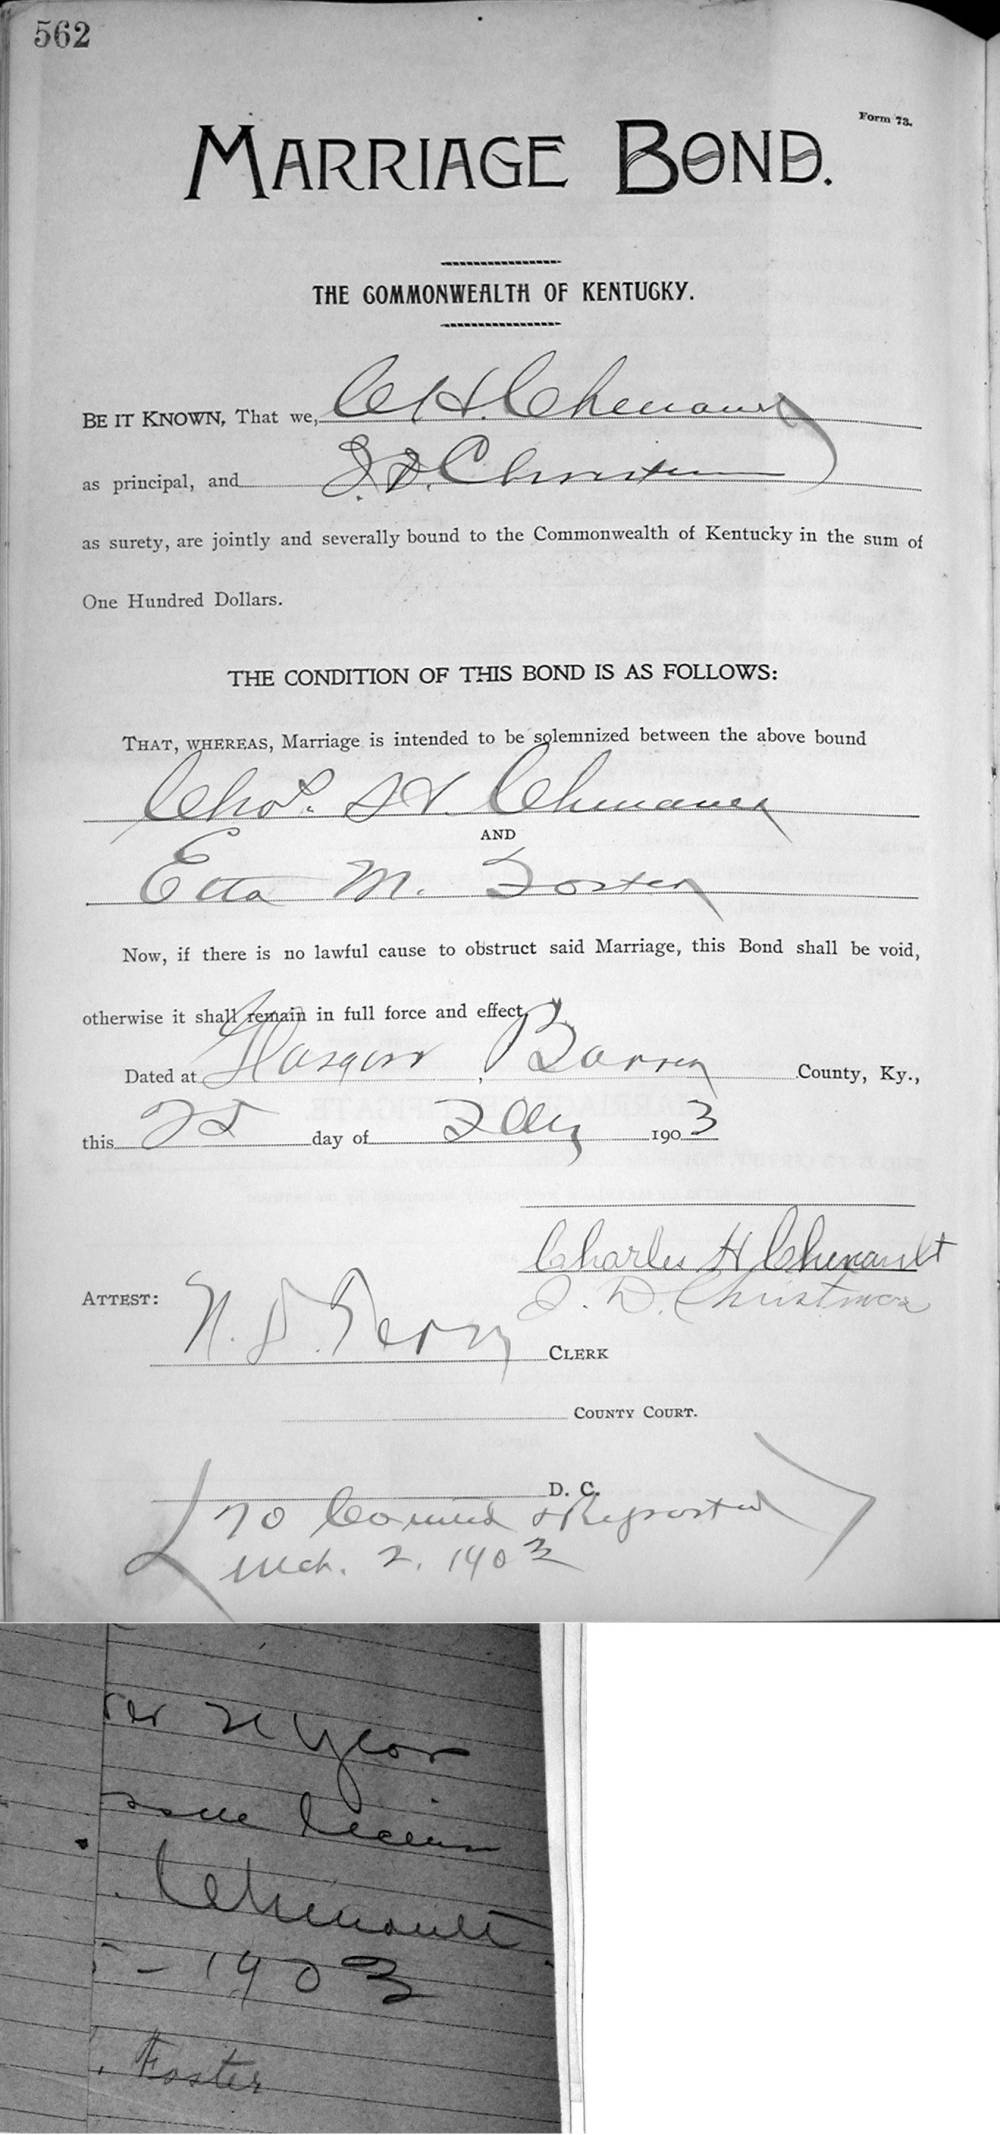 562
Form 73.
MARRIAGE BOND.
THE COMMONWEALTH OF KENTUCKY.
BE IT KNOWN, That we, C. H. Chenault
as principal, and J. D. Christmas
as surety, are jointly and severally bound to the Commonwealth of Kentucky in the sum of
One Hundred Dollars.
THE CONDITION OF THIS BOND IS AS FOLLOWS:
THAT, WHEREAS, Marriage is intended to be solemnized between the above bound
Chas. H. Chenault
AND
Etta M. Foster
Now, if there is no lawful cause to obstruct said Marriage, this Bond shall be void,
otherwise it shall remain in full force and effect.
Dated at Glasgow, Barren County, Ky.,
this 25 day of Feby 1903
Charles H Chenault
J. D. Christmas
ATTEST:
CLERK
COUNTY COURT.
D. C.
Reported
Mch. 2. 1903
21 year
issue license
. Chenault
- 1903
. Foster